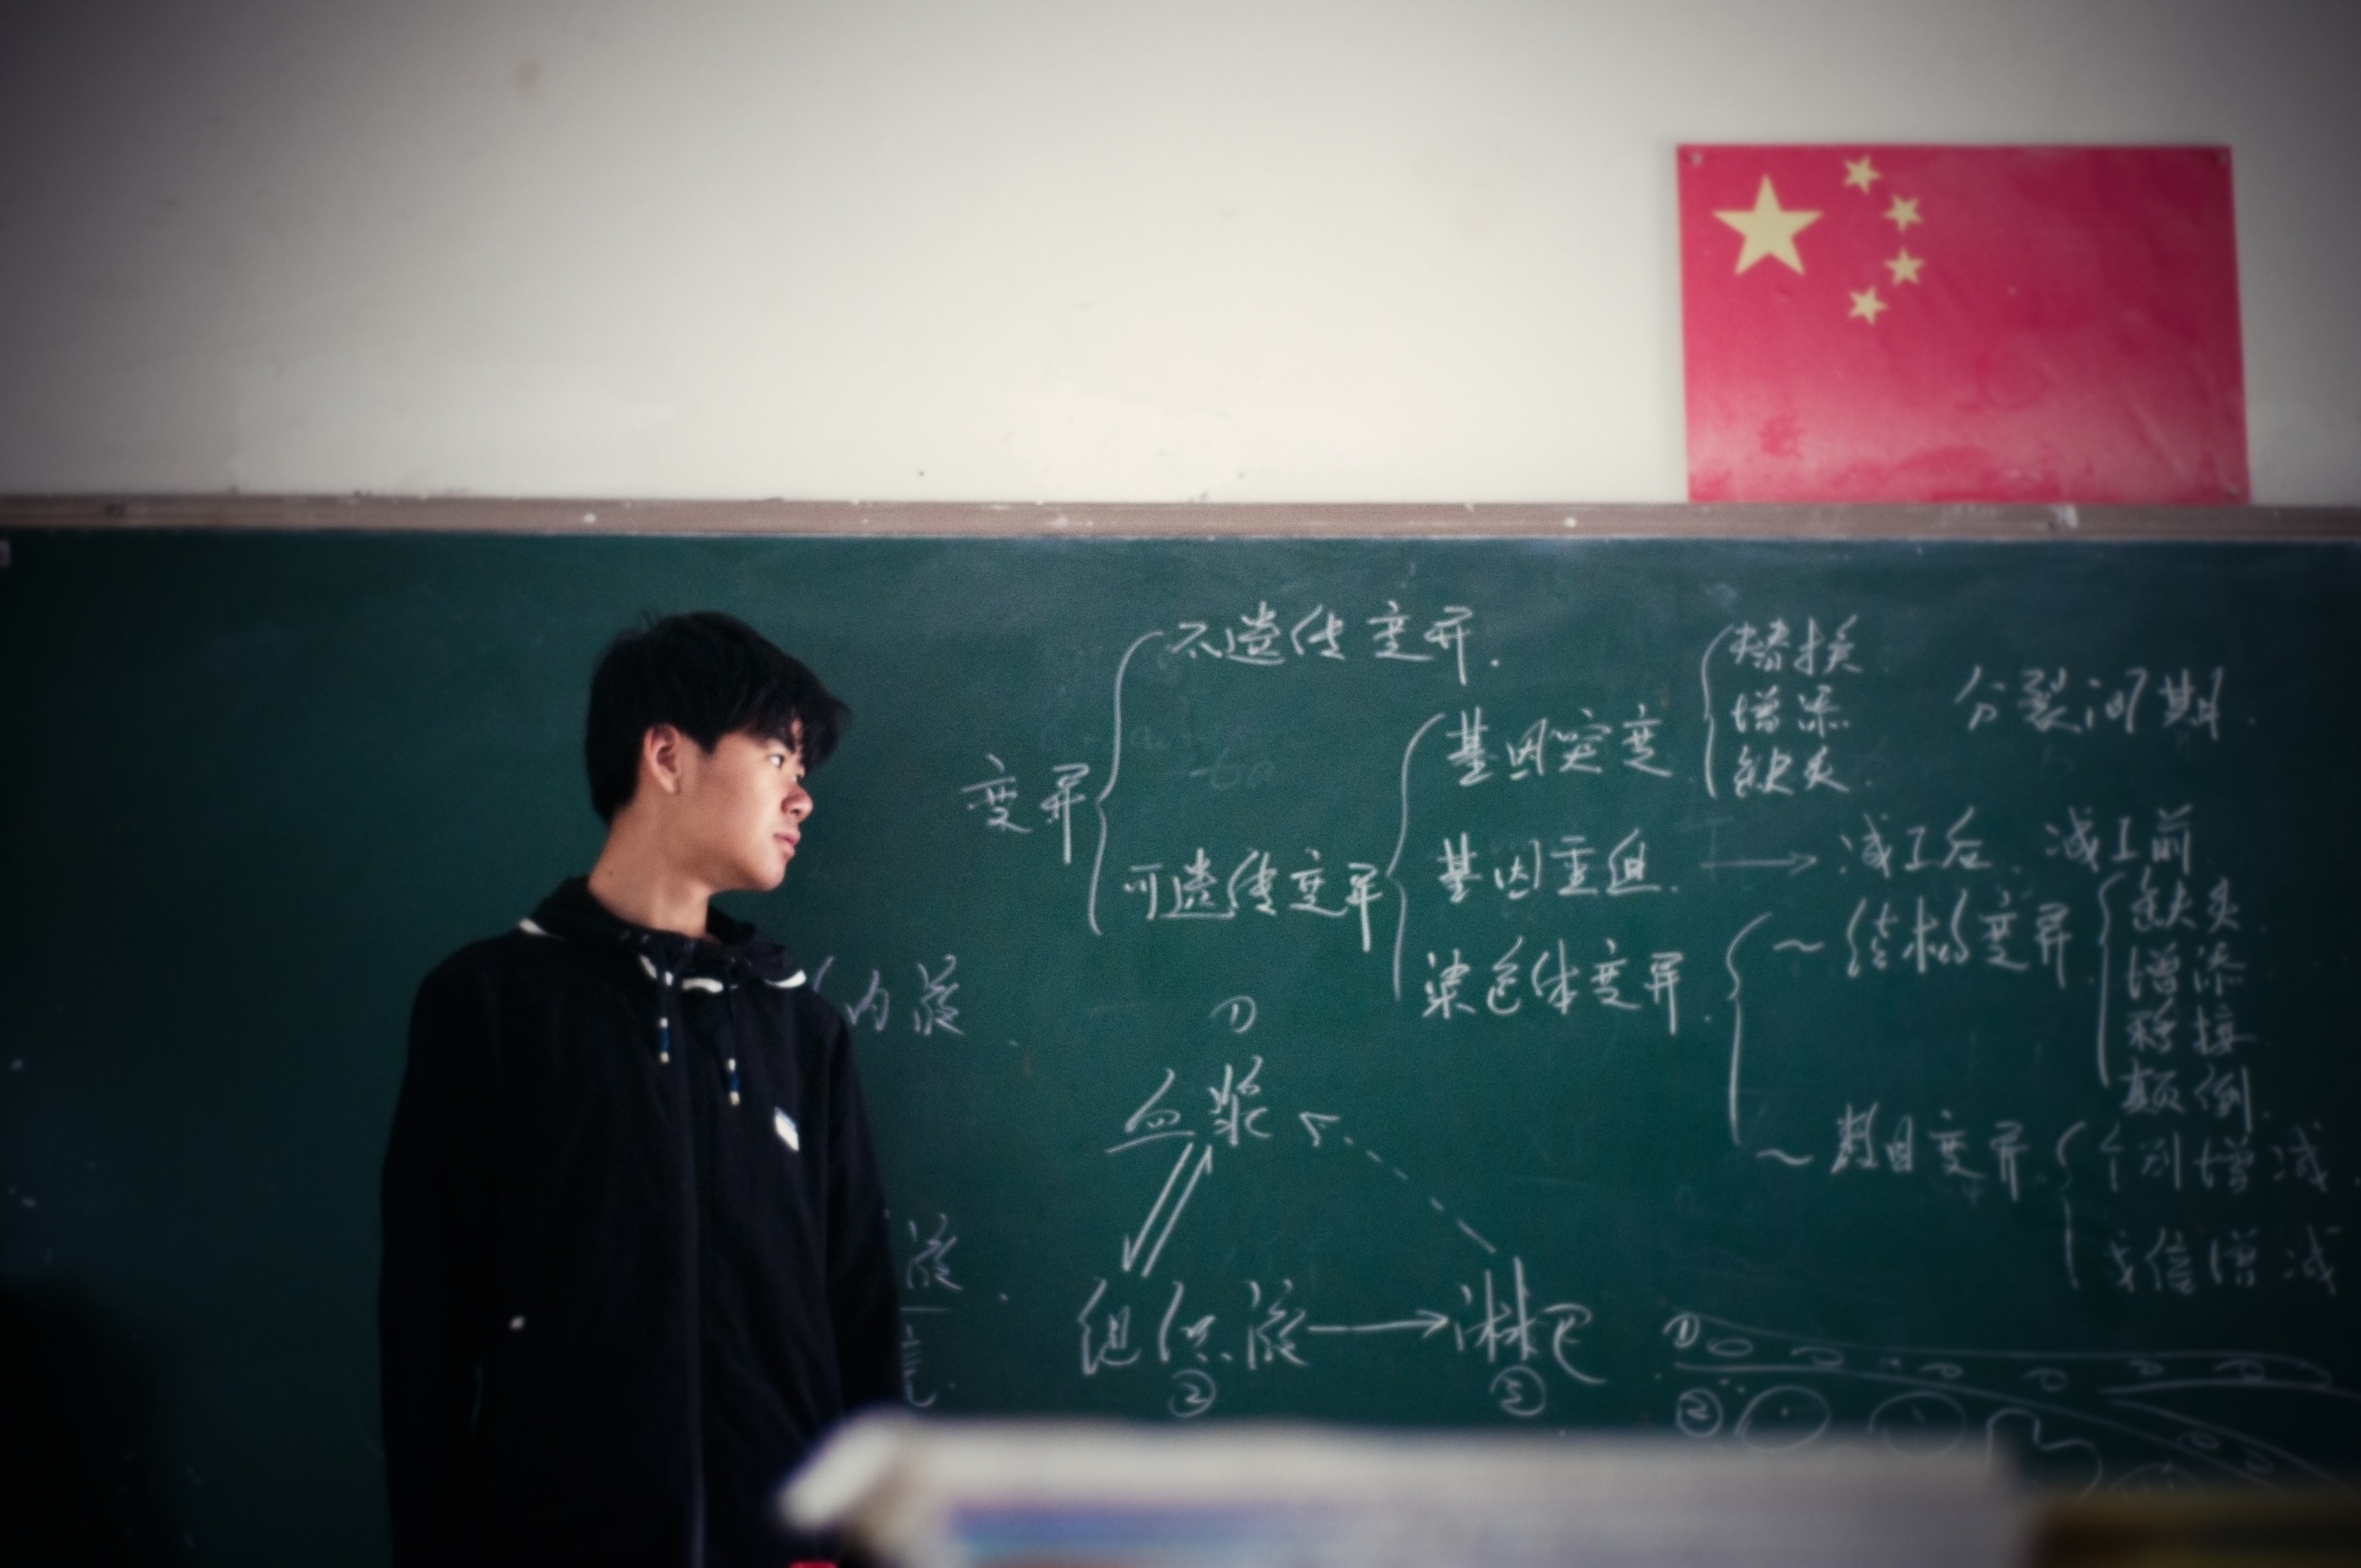 不遗传变异.
变异
可遗传变异
基因突变
替换
增添
缺失.
分裂间期.
基因重组. → 减I后. 减I前
染色体变异.
~结构变异
缺失.
增添
移接
颠倒.
~数目变异
个别增减.
成倍增减
内液.
液.
①
血浆
组织液 → 淋巴
② ③
①
②